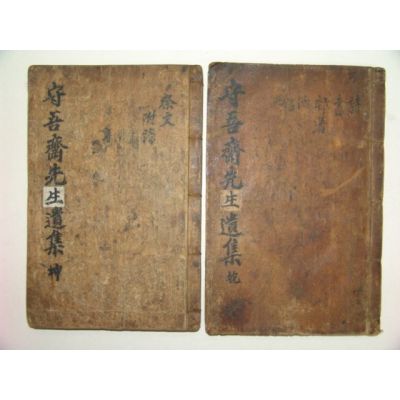 守吾齋先生遺集 乾
詩
書
雜著
守吾齋先生遺集 坤
祭文
附錄